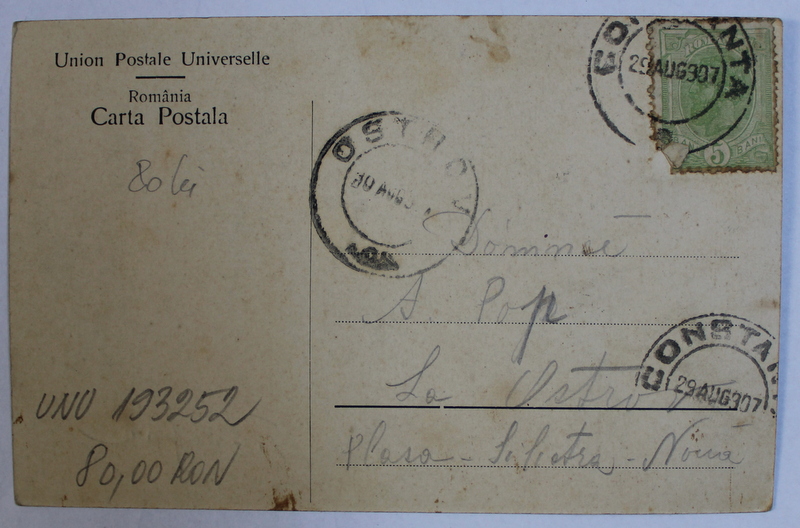 Union Postale Universelle
România
Carta Postala
80 lei
UNU 193252
80,00 RON
CONSTANTA
29 AUG 907
5 BANI
OSTROV
30 AUG
A. Pop
La Ostrov
CONSTAN
29 AUG 907
Plasa - Silistra - Nouă